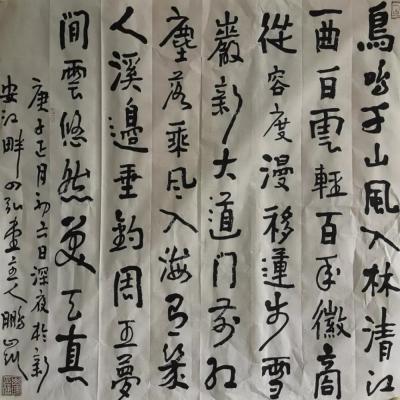 鳥鳴山風入林清江
一曲白雲輕百年徽商
從容度漫移蓮步雪
巖新大道門前紅
塵落乘風入海
人溪邊垂釣周王夢
間雲悠然美天真
庚子正月初六日深夜於新
安江畔人鵬